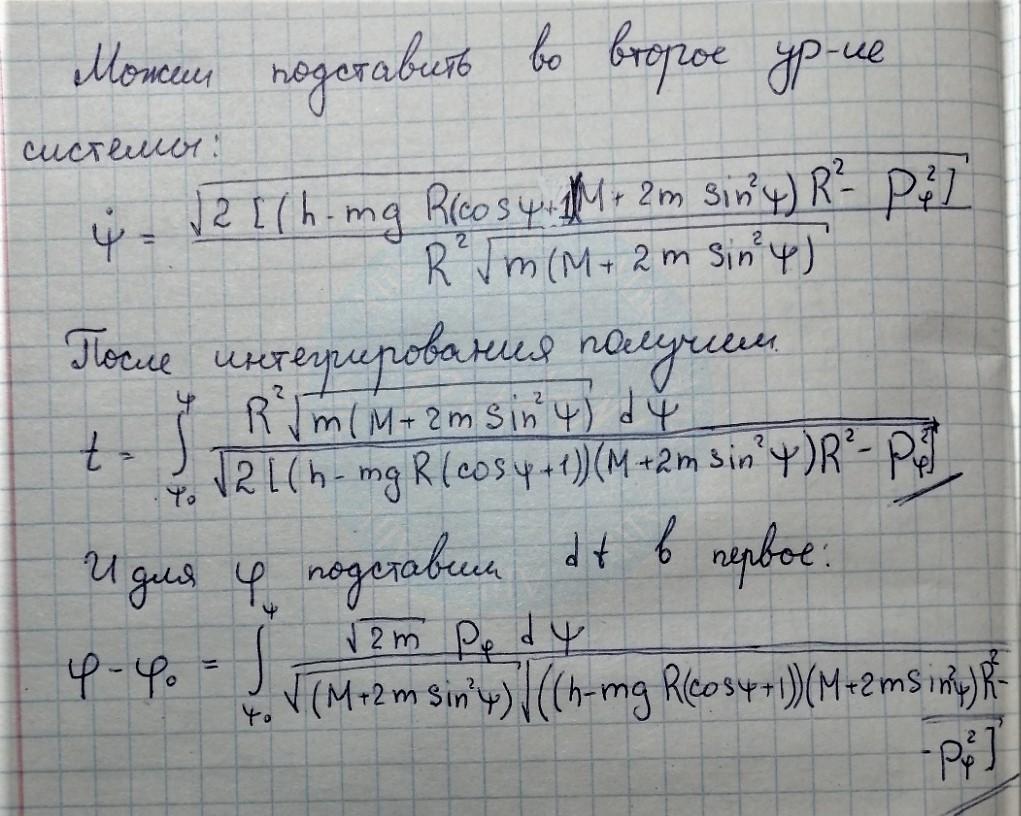 Можем подставить во второе ур-ие
системы:
ψ̇ = √(2[(h-mg R(cosψ+1)(M+2m sin²ψ)R² - p_φ²]) / (R²√(m(M+2m sin²ψ)))
После интегрирования получим
t = ∫_{ψ₀}^{ψ} R²√(m(M+2m sin²ψ)) dψ / √(2[(h-mgR(cosψ+1))(M+2m sin²ψ)R² - p_φ²])
И для φ подставим dt в первое:
φ-φ₀ = ∫_{ψ₀}^{ψ} √(2m) p_φ dψ / (√(M+2m sin²ψ) √(((h-mg R(cosψ+1))(M+2m sin²ψ)R² -
- p_φ²])